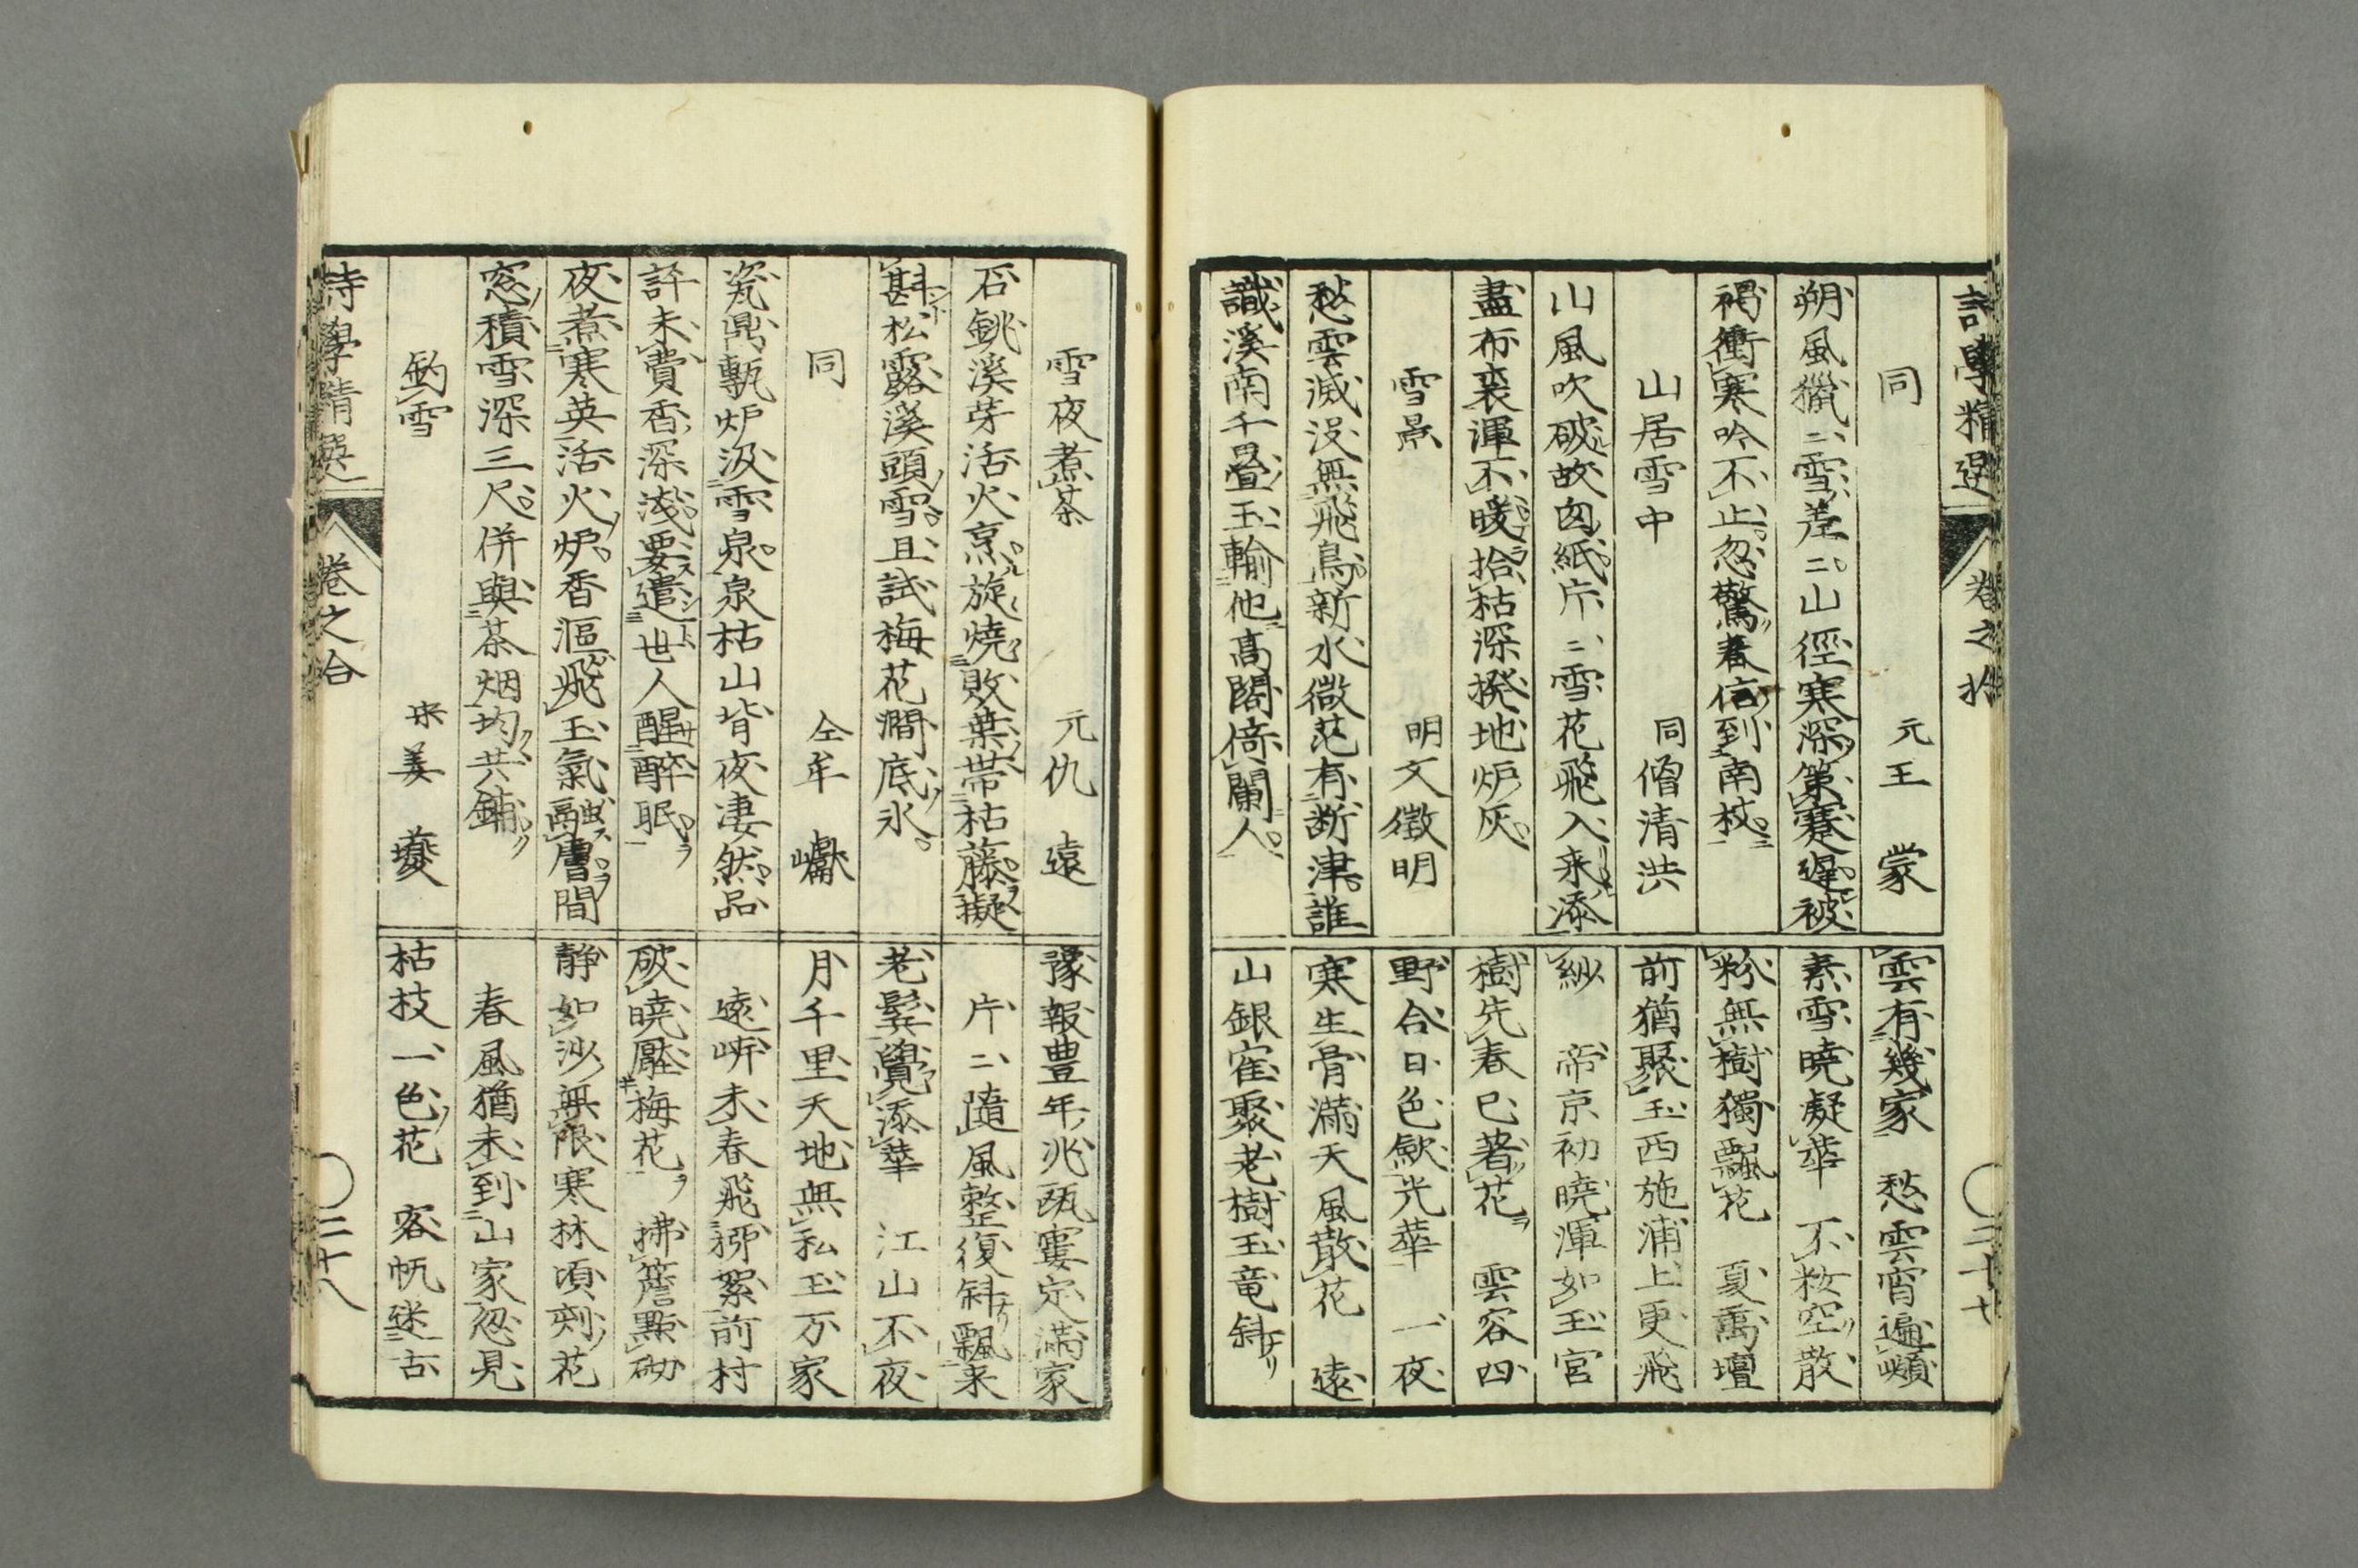 詩學精選 卷之拾 二十七
同 元王 蒙
朔風獵〻雪差〻山徑寒深策蹇遲被
褐衝寒吟不止忽驚春信到南枝
山居雪中 同僧清洪
山風吹破故囱紙片〻雪花飛入来添
盡布裘渾不暖拾枯深撥地炉灰
雪景 明文徵明
愁雲滅没無飛鳥新水微茫有断津誰
識溪南千疊玉輸他高閣倚闌人
雲有幾家 愁雲宵遍嶺
素雪曉凝華 不粧空散
粉無樹獨飄花 夏禹壇
前猶聚玉西施浦上更飛
紗 帝京初曉渾如玉宮
樹先春已著花 雲容四
野合日色歛光華 一夜
寒生骨滿天風散花 遠
山銀寉聚老樹玉竜斜
雪夜煮茶 元仇 遠
石銚溪芽活火烹旋燒敗葉帯枯藤擬
斟松露溪頭雪且試梅花澗底氷
同 仝牟 巘
瓷鼎甎炉汲雪泉泉枯山背夜凄然品
評未費香深淺要遣世人醒醉眠
夜煮寒英活火炉香漚飛玉氣融膚間
窓積雪深三尺併與茶烟均共鋪
釣雪 宋姜 夔
豫報豊年兆甌寠定滿家
片〻隨風整復斜飄来
老鬂覺添華 江山不夜
月千里天地無私玉万家
遠岍未春飛柳絮前村
破曉壓梅花 拂簷點砌
静如沙無限寒林頃刻花
春風猶未到山家忽見
枯枝一色花 客帆迷古
詩學精選 卷之拾 二十八